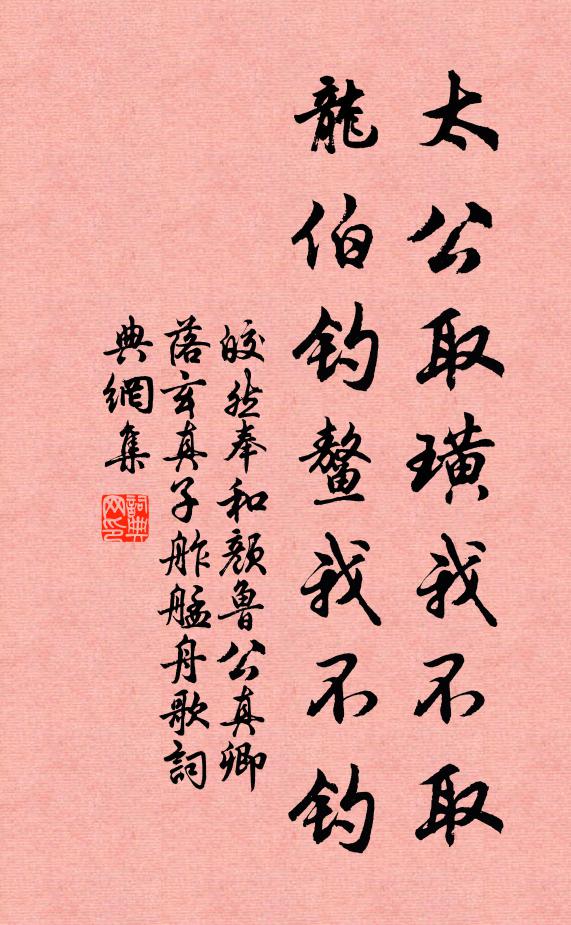 太公取璜我不取
龍伯钓鰲我不钓
皎然奉和颜魯公真卿
落玄真子舴艋舟歌詞
典網集
詞典网印